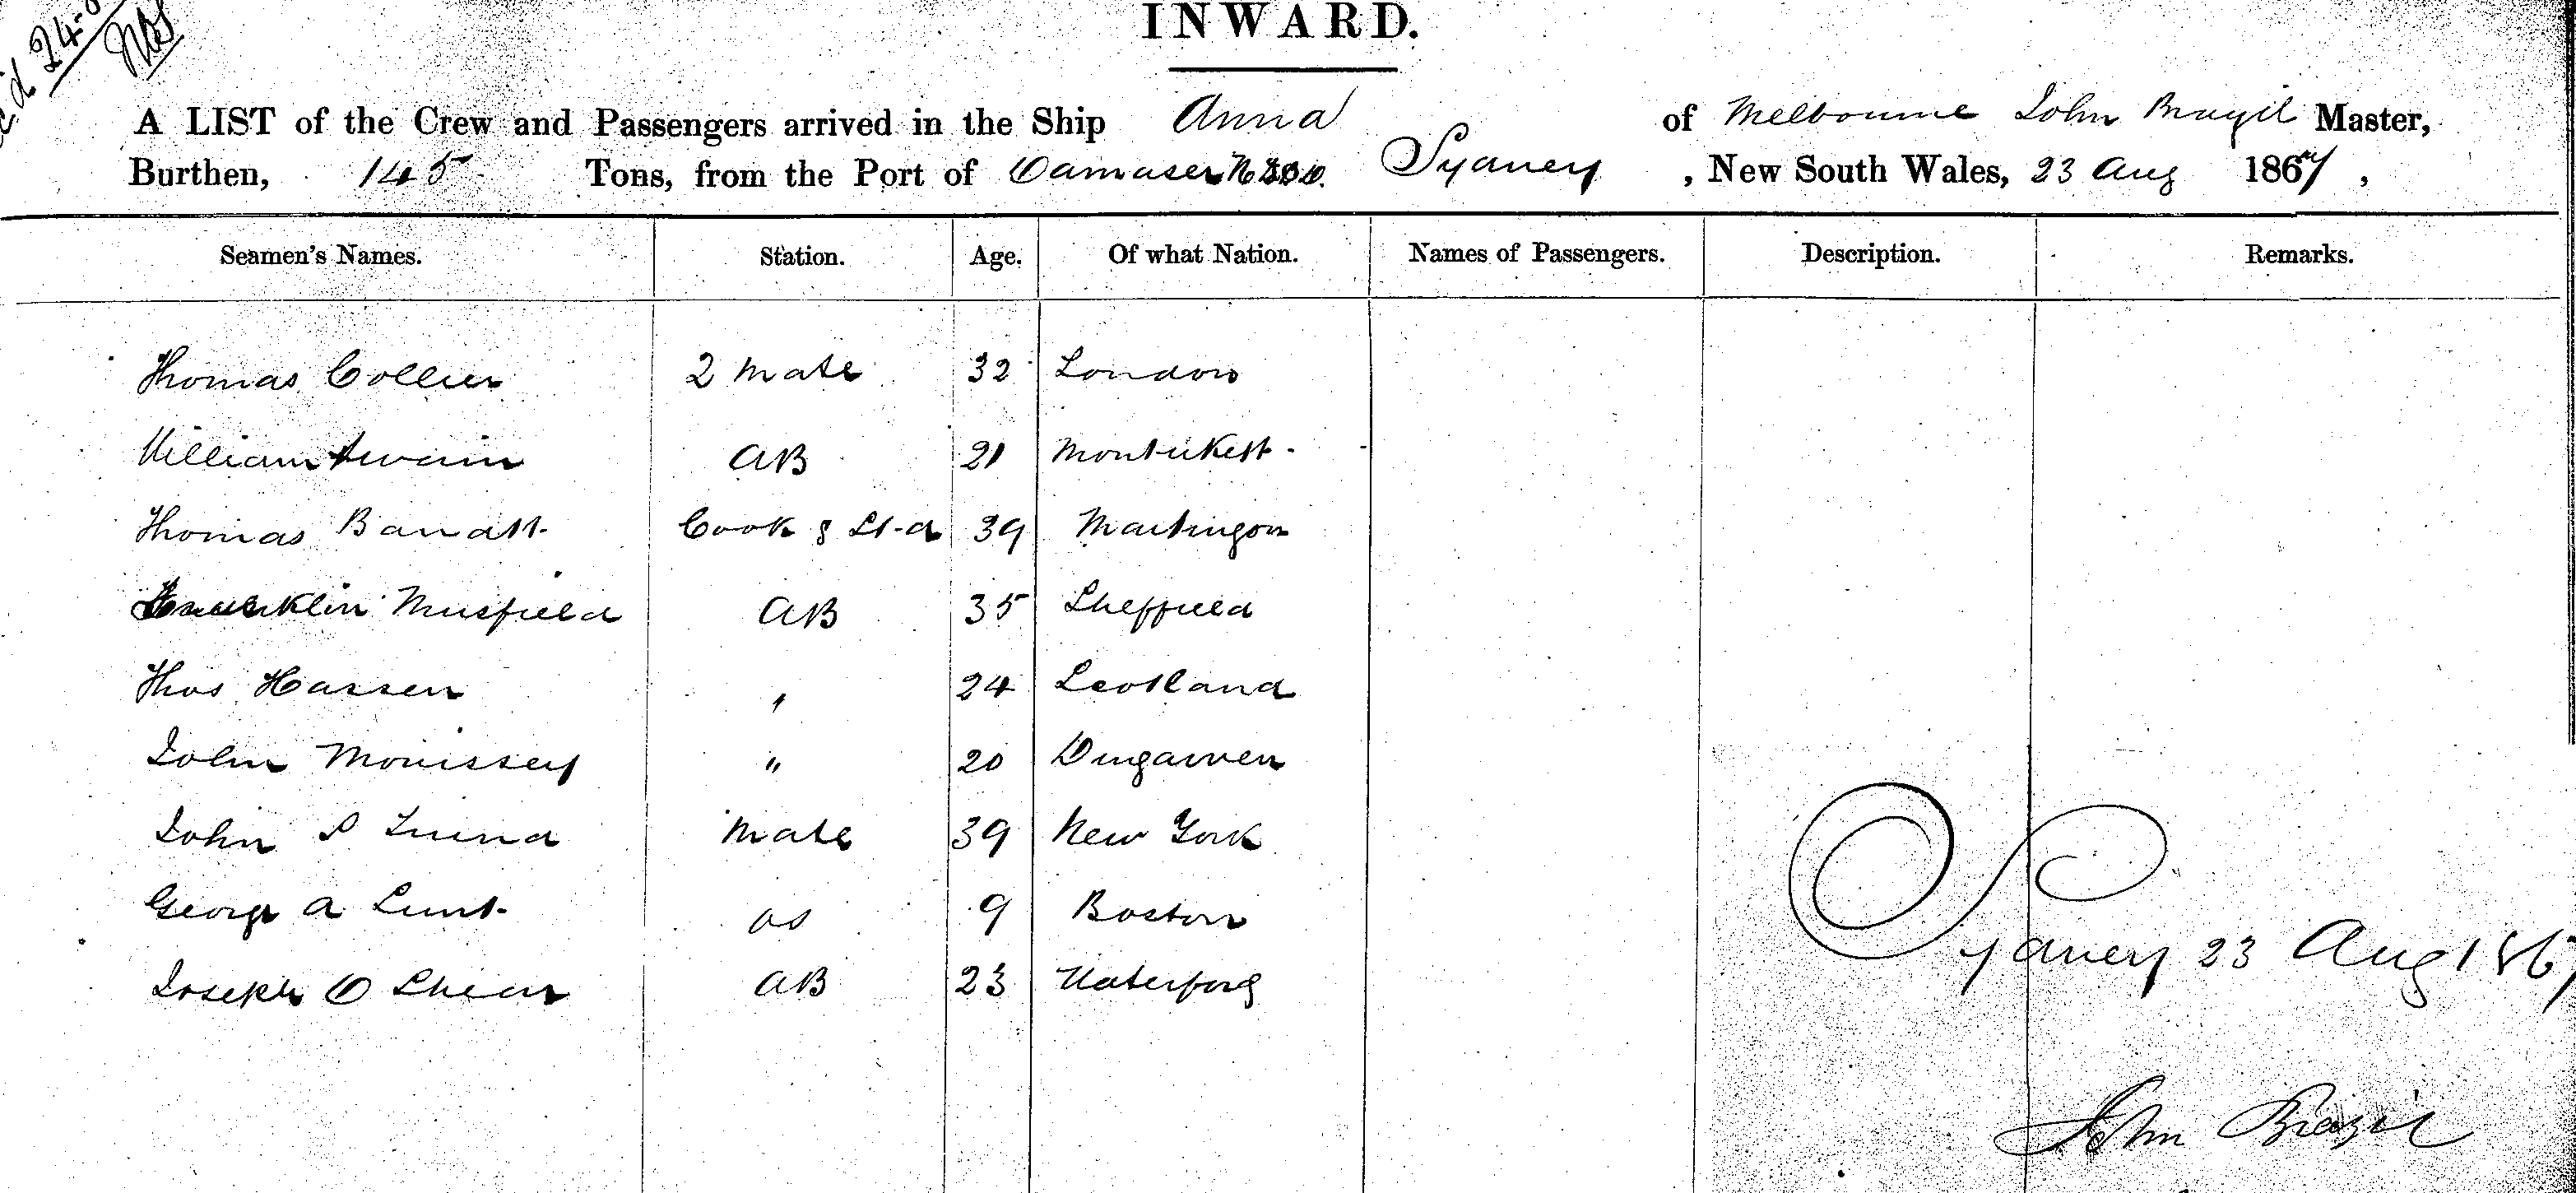 INWARD.
24-8
A LIST of the Crew and Passengers arrived in the Ship Anna of Melbourne John Brazil Master,
Burthen, 145 Tons, from the Port of Sydney, New South Wales, 23 Aug 1867,
Seamen's Names. Station. Age. Of what Nation. Names of Passengers. Description. Remarks.
Thomas Collier 2 Mate 32 London
William Swain AB 21
Thomas Barratt Cook & St-d 39
Franklin Musfield AB 35 Sheffield
Thos Hassen " 24 Scotland
John Morrissey " 20 Dungarven
John S Mate 39 New York
George A Lunt OS 9 Boston
Joseph O Shean AB 23 Waterford
Sydney 23 Aug 1867
John Brazil